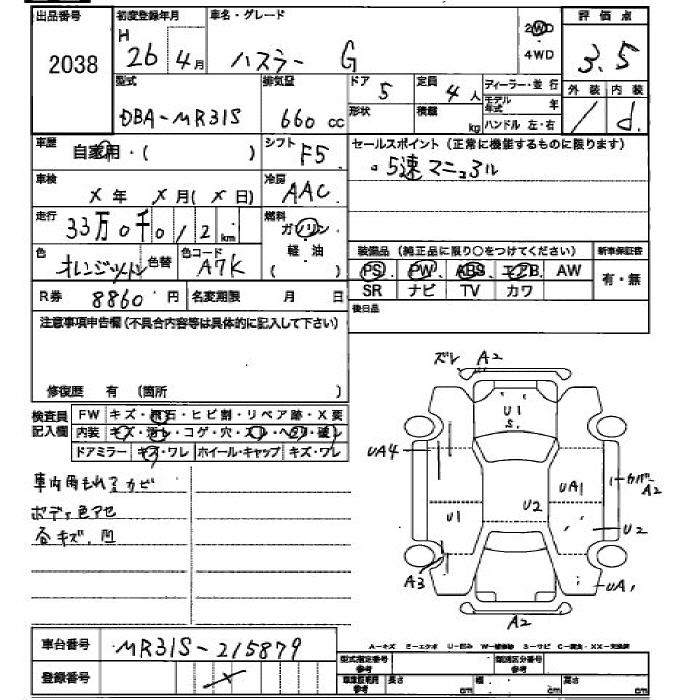 出品番号 初度登録年月 車名・グレード 2WD 評価点
2038 H 26年 4月 ハスラー G 4WD 3.5
型式 排気量 ドア 5 定員 4人 ディーラー・並行 外装 内装
DBA-MR31S 660cc 形状 積載 kg モデル年式 年 / d.
ハンドル 左・右
車歴 自家用・( ) シフト F5 セールスポイント(正常に機能するものに限ります)
車検 X年 X月(X日) 冷房 AAC 。5速マニュアル
走行 33万0千012km 燃料 ガソリン
軽油
( )
色 色替 色コード A7K 装備品(純正品に限り○をつけてください) 新車保証書
PS PW ABS エアB AW 有・無
R券 8860円 名変期限 月 日 SR ナビ TV カワ
注意事項申告欄(不具合内容等は具体的に記入して下さい) 後日品
修復歴 有 (箇所 )
検査員記入欄 FW キズ・飛石・ヒビ割・リペア跡・X要
内装 キズ・汚レ・コゲ・穴・スレ・ヘタリ・破レ
ドアミラー キズ・ワレ ホイール・キャップ キズ・ワレ
ボディ色アセ
各キズ.凹
ズレ A2
U1
S.
UA4
UA1
カバーA2
U1
U2
U2
A3
UA1
A2
車台番号 MR31S-215879
登録番号 X
A-キズ E-エクボ U-凹み W-補修跡 S-サビ C-腐食・XX-交換済
型式指定番号 参考 類別区分番号 参考
車庫証明用 参考 長さ cm 幅 cm 高さ cm